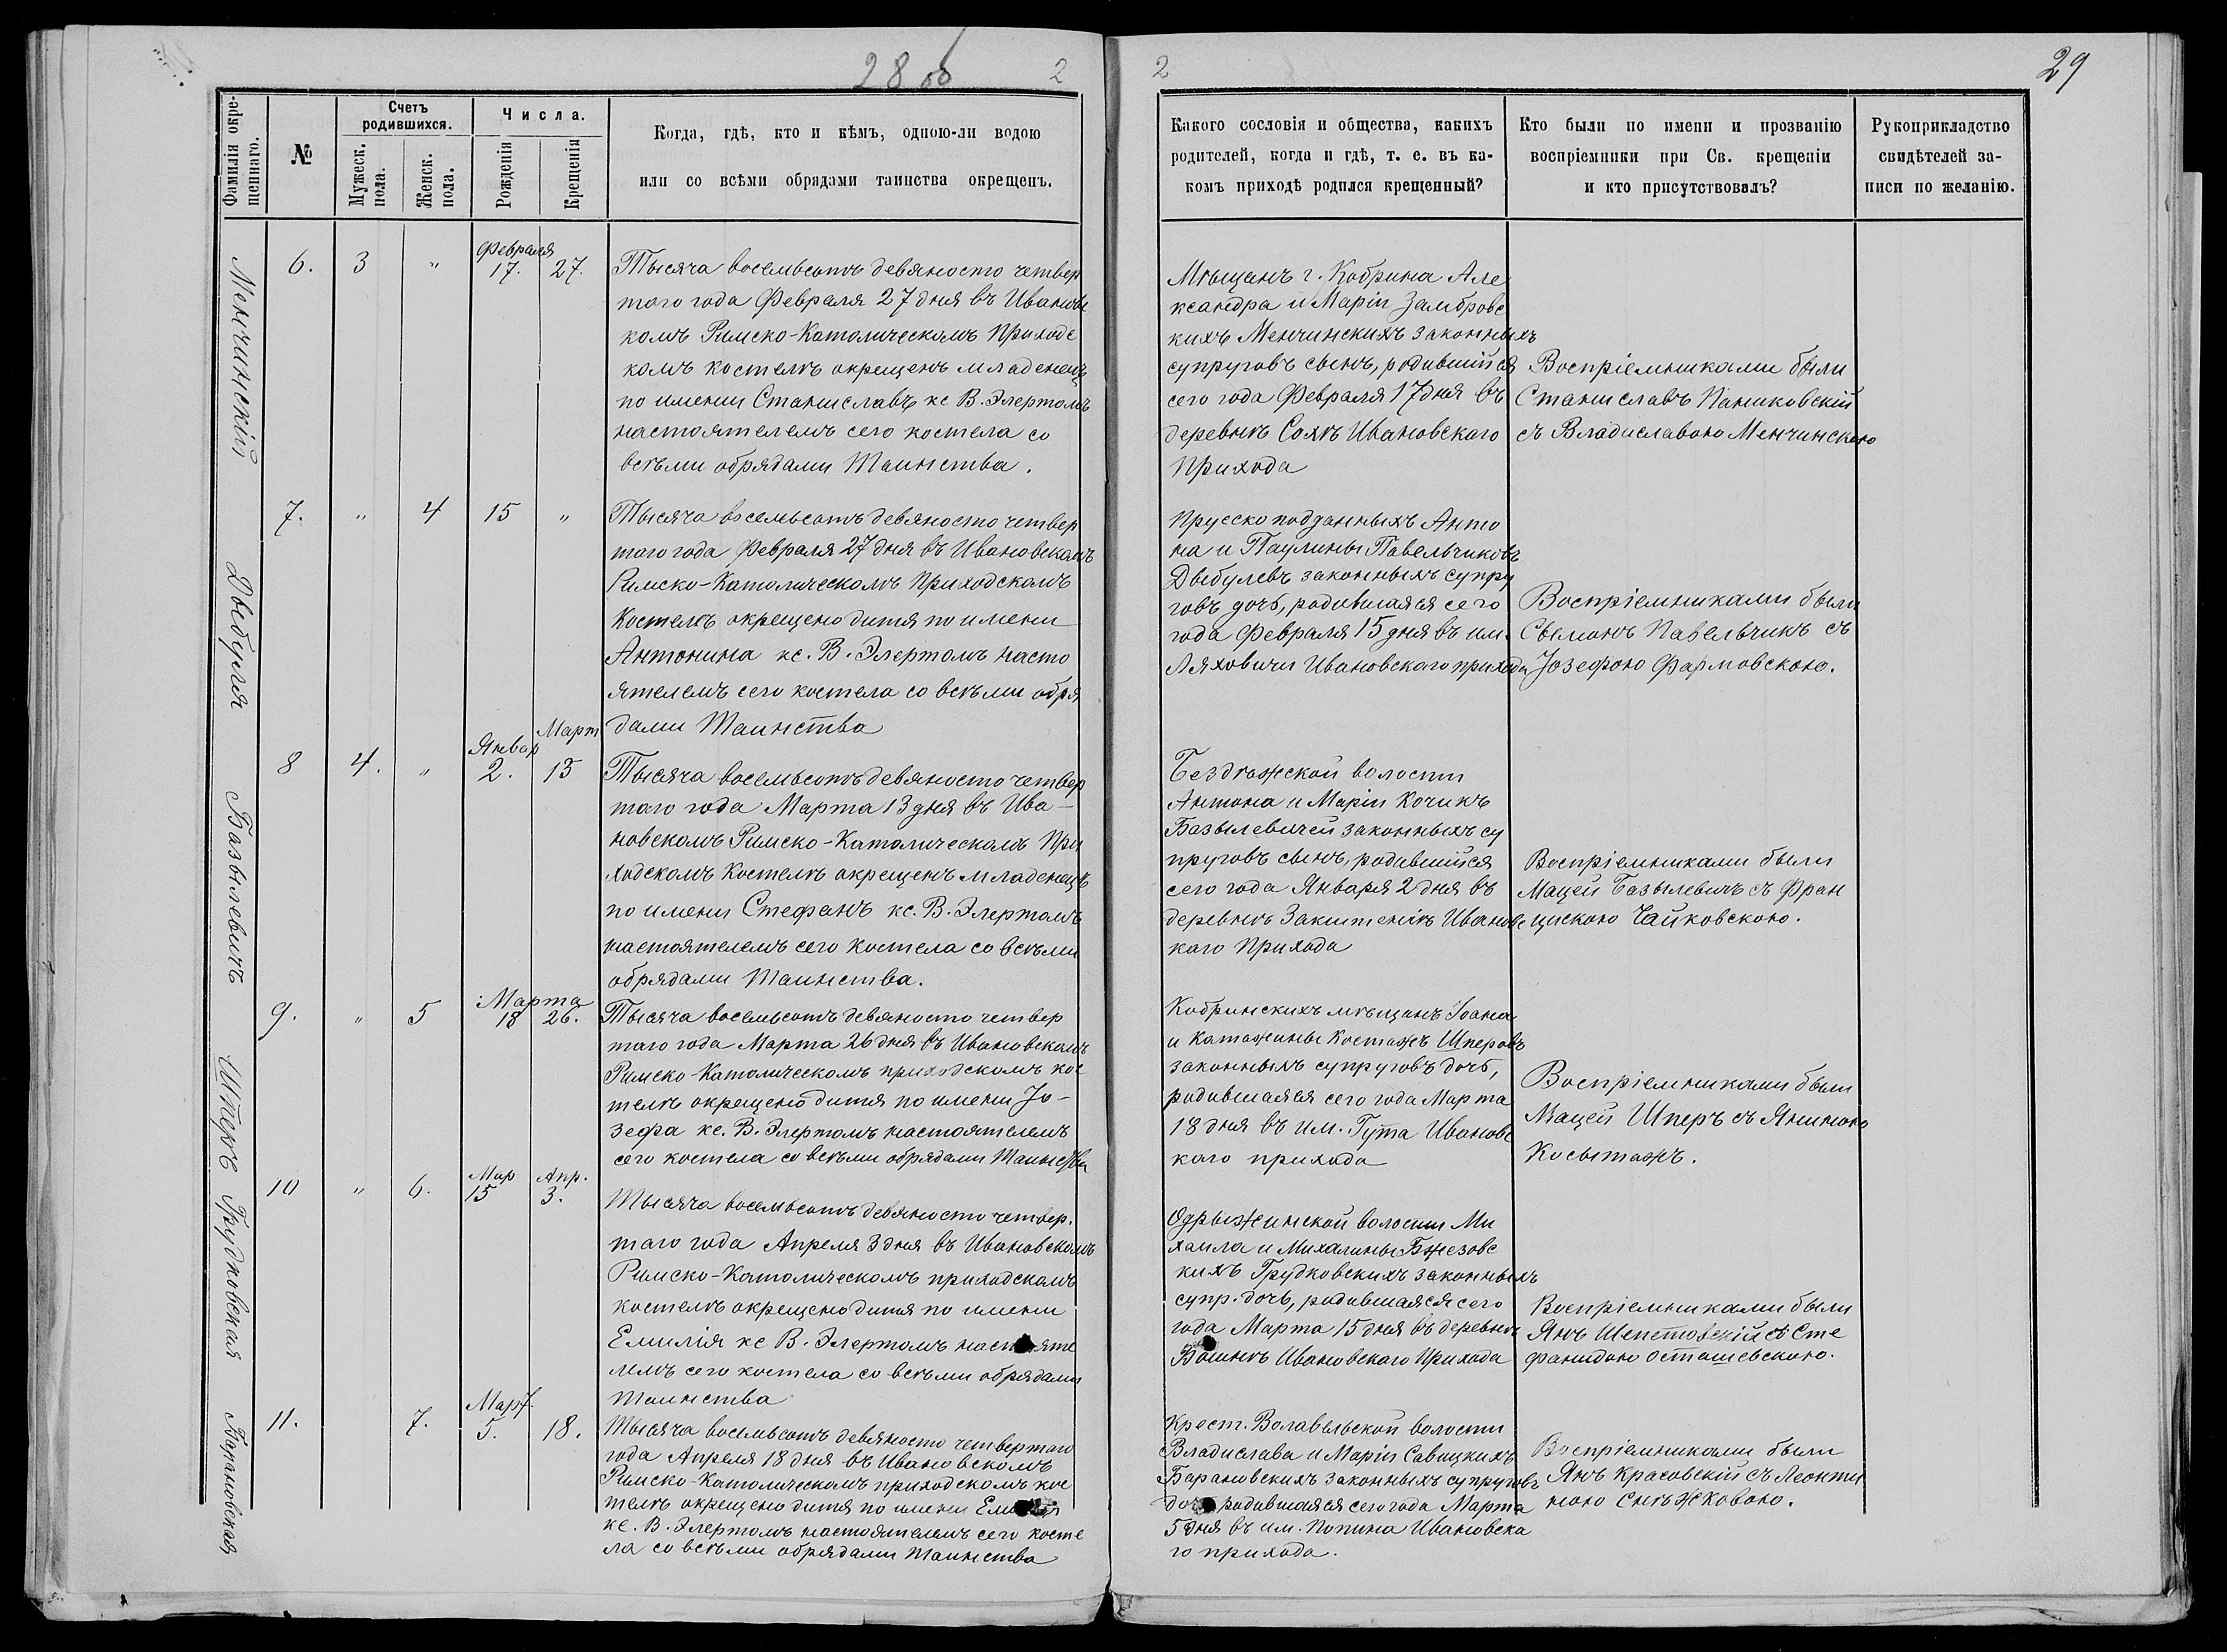 28 об
2
Фамилія окре-
щеннаго.
№
Счетъ
родившихся.
Мужеск.
пола.
Женск.
пола.
Числа.
Рожденія
Крещенія
Когда, гдѣ, кто и кѣмъ, одною-ли водою
или со всѣми обрядами таинства окрещенъ.
Менчинскій
6.
3
"
Февраля
17.
27.
Тысяча восемьсотъ девяносто четвер
таго года Февраля 27 дня въ Ивановс
комъ Римско-Католическомъ Приходс
комъ костелѣ окрещенъ младенецъ
по имени Станиславъ кс В. Элертомъ
настоятелемъ сего костела со
всѣми обрядами Таинства.
Дыбуля
7.
"
4
15
"
Тысяча восемьсотъ девяносто четвер
таго года Февраля 27 дня въ Ивановскомъ
Римско-Католическомъ Приходскомъ
Костелѣ окрещено дитя по имени
Антонина кс. В. Элертомъ насто
ятелемъ сего костела со всѣми обря
дами Таинства
Базылевичъ
8
4.
"
Январ
2.
Март
13
Тысяча восемьсотъ девяносто четвер
таго года Марта 13 дня въ Ива-
новскомъ Римско-Католическомъ При
ходскомъ Костелѣ окрещенъ младенецъ
по имени Стефанъ кс. В. Элертомъ
настоятелемъ сего Костела со всѣми
обрядами Таинства.
Шперъ
9.
"
5
Марта
18
26.
Тысяча восемьсотъ девяносто четвер
таго года Марта 26 дня въ Ивановскомъ
Римско-Католическомъ приходскомъ кос
телѣ окрещено дитя по имени Іо-
зефа кс. В. Элертомъ настоятелемъ
сего костела со всѣми обрядами Таинства
Грудковская
10
"
6.
Мар
15
Апр.
3.
Тысяча восемьсотъ девяносто четвер.
таго года Апреля 3 дня въ Ивановскомъ
Римско-Католическомъ приходскомъ
костелѣ окрещено дитя по имени
Емилія кс В. Элертомъ настояте
лемъ сего костела со всѣми обрядами
Таинства
Барановская
11.
7.
Март.
5.
18.
Тысяча восемьсотъ девяносто четвертаго
года Апреля 18 дня въ Ивановскомъ
Римско-Католическомъ приходскомъ кос
телѣ окрещено дитя по имени
кс. В. Элертомъ настоятелемъ сего косте
ла со всѣми обрядами Таинства
2
29
Какого сословія и общества, какихъ
родителей, когда и гдѣ, т. е. въ ка-
комъ приходѣ родился крещенный?
Кто были по имени и прозванію
воспріемники при Св. крещеніи
и кто присутствовалъ?
Рукоприкладство
свидѣтелей за-
писи по желанію.
Мѣщанъ г. Кобрина Але
ксандра и Маріи Замбровс
кихъ Менчинскихъ законныхъ
супруговъ сынъ, родившійся
сего года Февраля 17 дня въ
деревнѣ Сохѣ Ивановскаго
Прихода
Воспріемниками были
Станиславъ Паниковскій
съ Владиславою Менчинскою
Прусско подданныхъ Анто
на и Паулины Павельчиковъ
Дыбулевъ законныхъ супру
говъ дочь, родившаяся сего
года Февраля 15 дня въ им.
Ляховичи Ивановскаго прихода
Воспріемниками были
Сымонъ Павельчикъ съ
Іозефою Фармовскою.
Бездѣжской волости
Антона и Маріи Кочикъ
Базылевичей законныхъ су
пруговъ сынъ, родившійся
сего года Января 2 дня въ
деревнѣ Закитеніѣ Ивановс
каго Прихода
Воспріемниками были
Мацей Базылевичъ съ Фран
цискою Чайковскою.
Кобринскихъ мѣщанъ Іоана
и Катажины Костажъ Шперовъ
законныхъ супруговъ дочь,
родившаяся сего года Марта
18 дня въ им. Гута Ивановс
каго прихода
Воспріемниками были
Мацей Шперъ съ Яниною
Косытажъ.
Одрыжинской волости Ми
хаила и Михалины Бжезовс
кихъ Грудковскихъ законныхъ
супр. дочь, родившаяся сего
года Марта 15 дня въ деревнѣ
Вошнѣ Ивановскаго Прихода
Воспріемниками были
Янъ Шепетовскій съ Сте
фанидою Осташевскою.
Крест. Волавельской волости
Владислава и Маріи Савицкихъ
Барановскихъ законныхъ супруговъ
дочь родившаяся сего года Марта
5 дня въ им. Попина Ивановска
го прихода.
Воспріемниками были
Янъ Красовскій съ Леонти
ною Снѣжковою.